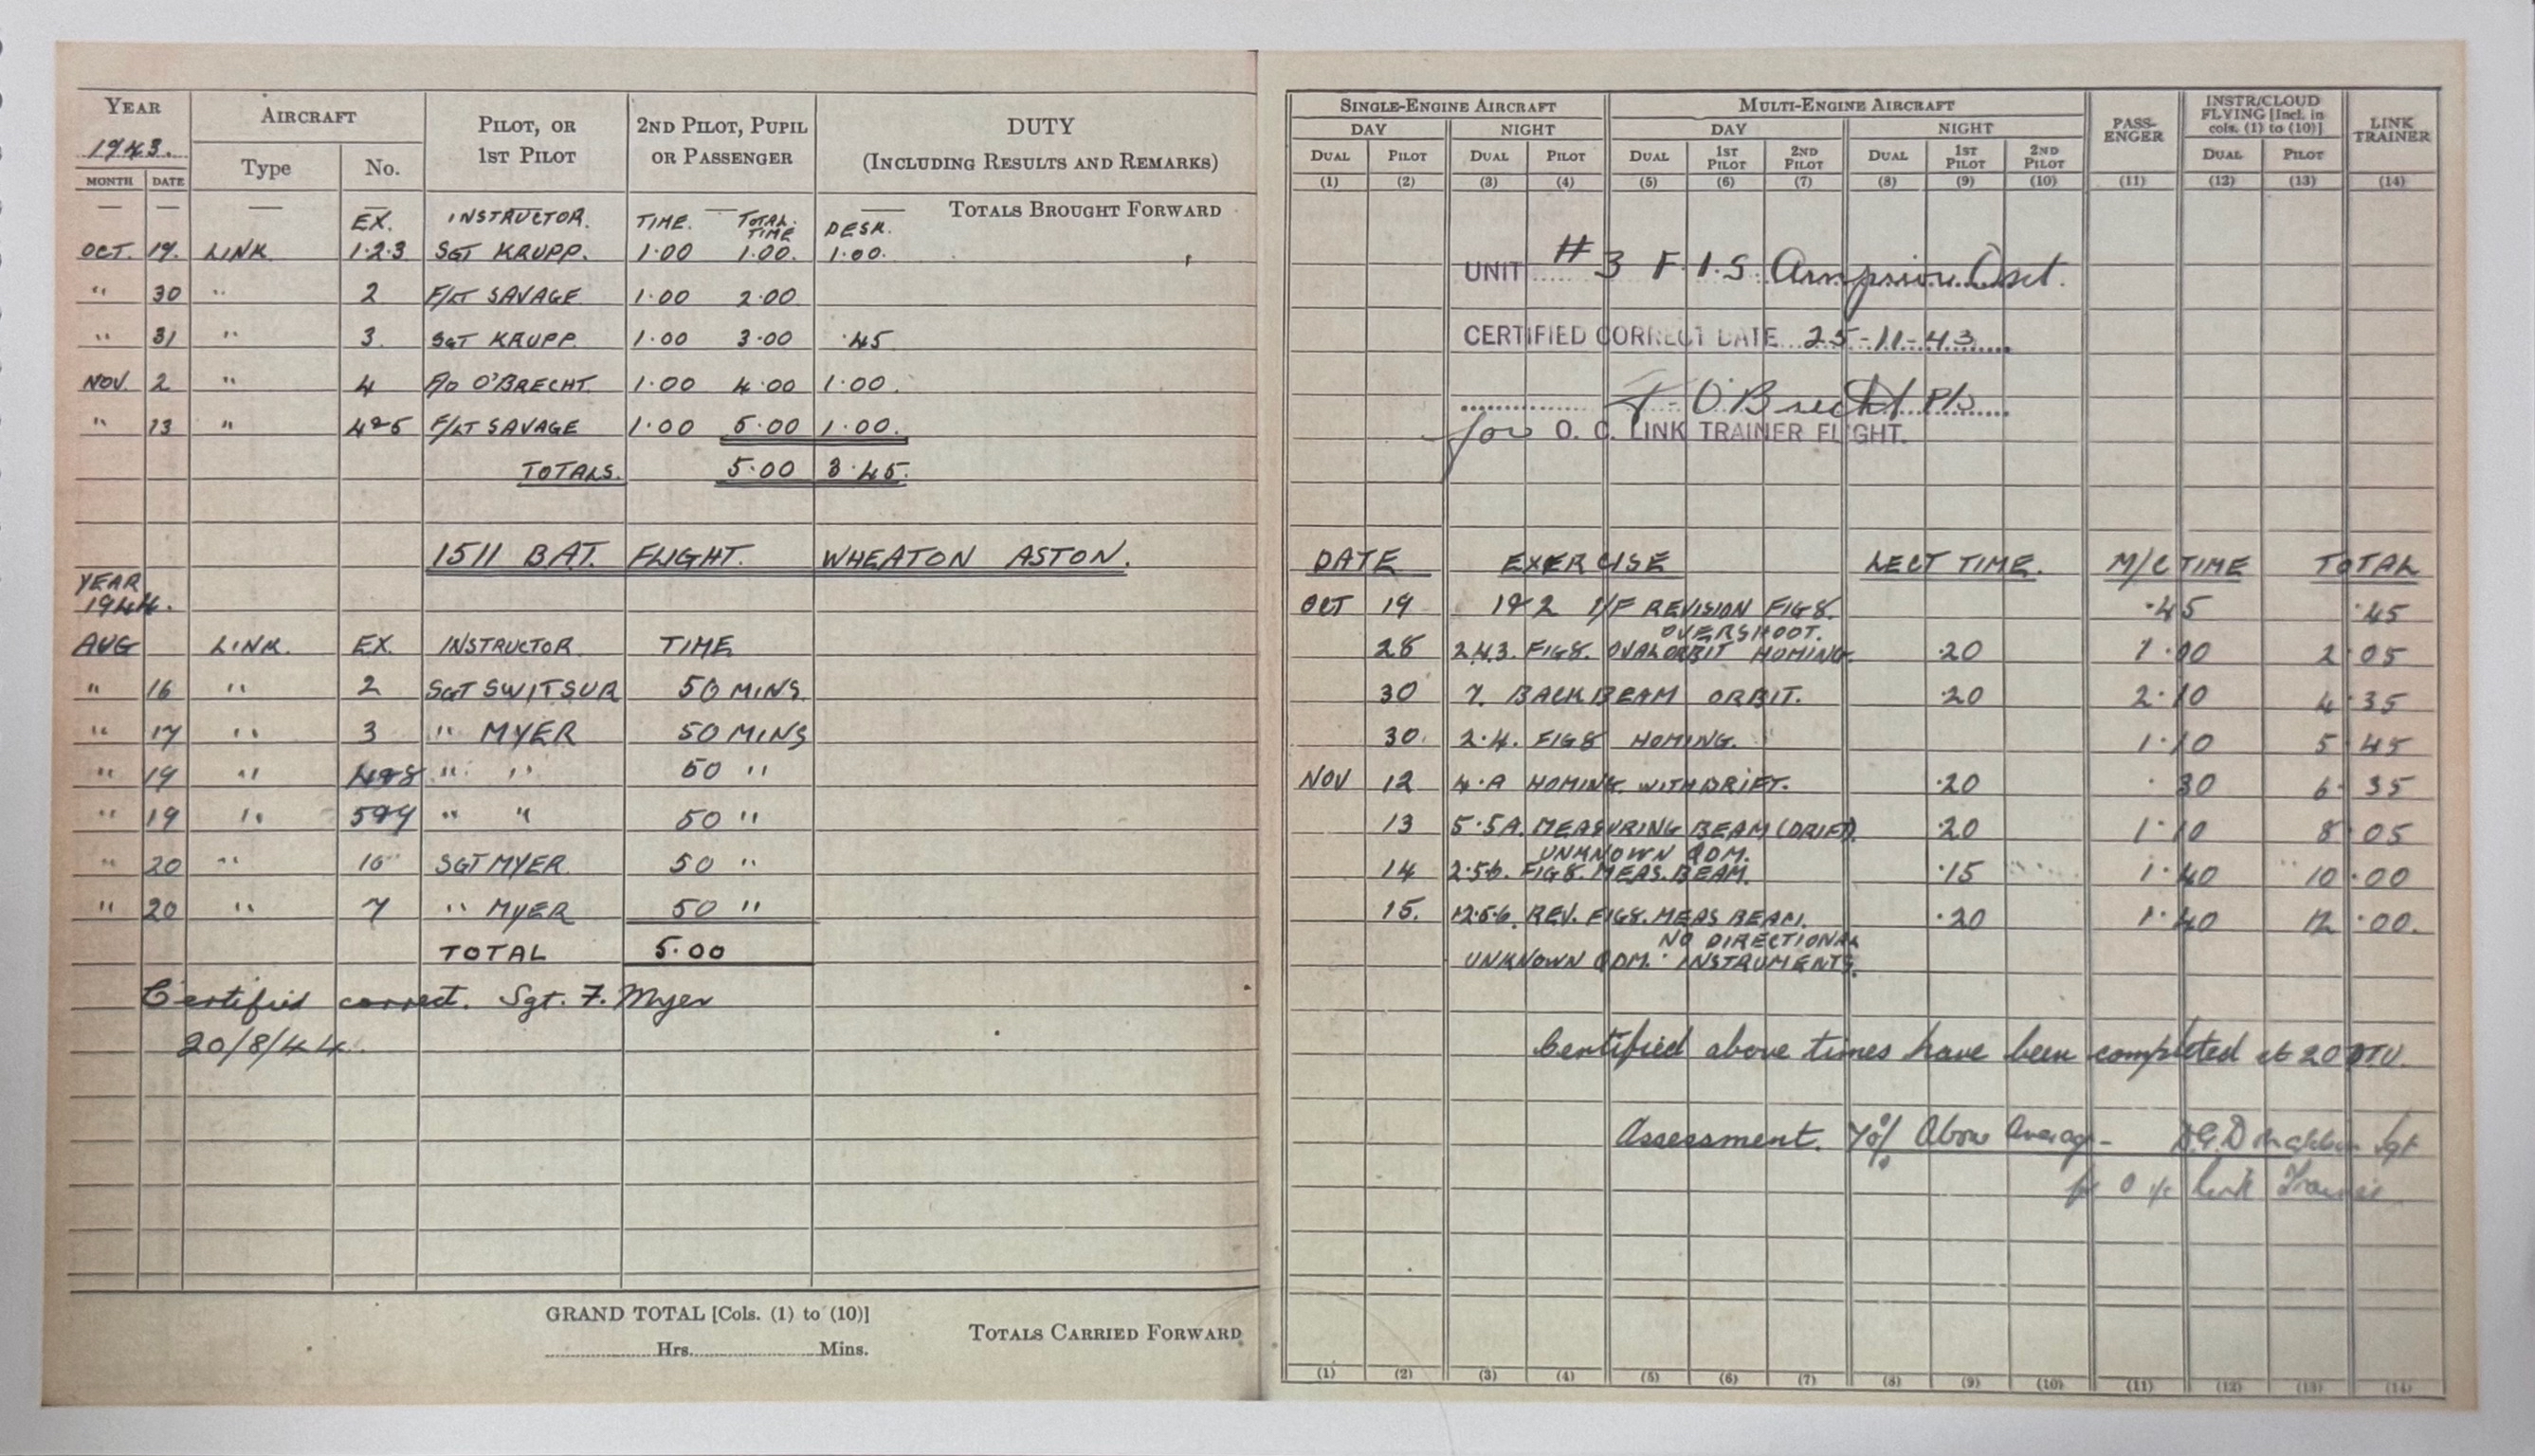 YEAR AIRCRAFT PILOT, OR 1ST PILOT 2ND PILOT, PUPIL OR PASSENGER DUTY (INCLUDING RESULTS AND REMARKS)
1943.
MONTH DATE Type No.
— — — — — — TOTALS BROUGHT FORWARD
EX. INSTRUCTOR. TIME. TOTAL TIME DESK.
OCT. 19. LINK 1·2·3 SGT KRUPP. 1·00 1·00. 1·00.
" 30 " 2 F/LT SAVAGE 1·00 2·00
" 31 " 3. SGT KRUPP. 1·00 3·00 ·45
NOV. 2 " 4 P/O O'BRECHT. 1·00 4·00 1·00.
" 13 " 4&5 F/LT SAVAGE 1·00 5·00 1·00.
TOTALS. 5·00 3·45.
1511 BAT. FLIGHT. WHEATON ASTON.
YEAR
1944.
AUG LINK. EX. INSTRUCTOR TIME
" 16 " 2 SGT SWITSUR 50 MINS.
" 17 " 3 " MYER 50 MINS
" 19 " 4&8 " " 50 "
" 19 " 5&9 " " 50 "
" 20 " 10 SGT MYER. 50 "
" 20 " 7 " MYER 50 "
TOTAL 5·00
Certified correct. Sgt. F. Myer
20/8/44.
GRAND TOTAL [Cols. (1) to (10)]
Hrs. Mins.
TOTALS CARRIED FORWARD
SINGLE-ENGINE AIRCRAFT MULTI-ENGINE AIRCRAFT PASSENGER INSTR/CLOUD FLYING [Incl. in cols. (1) to (10)] LINK TRAINER
DAY NIGHT DAY NIGHT
DUAL PILOT DUAL PILOT DUAL 1ST PILOT 2ND PILOT DUAL 1ST PILOT 2ND PILOT DUAL PILOT
(1) (2) (3) (4) (5) (6) (7) (8) (9) (10) (11) (12) (13) (14)
UNIT #3 F.I.S. Arnprior Ont.
CERTIFIED CORRECT DATE 25-11-43
F. O'Brecht P/O
for O. C. LINK TRAINER FLIGHT.
DATE EXERCISE LECT TIME. M/C TIME TOTAL
OCT 19 1&2 I/F REVISION FIG 8. ·45 ·45
OVERSHOOT.
28 2.4.3. FIG 8. OVAL ORBIT HOMING. ·20 1·00 2·05
30 7. BACK BEAM ORBIT. ·20 2·10 4·35
30. 2·4. FIG 8 HOMING. 1·10 5·45
NOV 12 4·A HOMING. WITH DRIFT. ·20 ·30 6·35
13 5·5A. MEASURING BEAM (DRIFT). ·20 1·10 8·05
UNKNOWN QDM.
14 2·5·6. FIG 8. MEAS. BEAM. ·15 1·40 10·00
15. 12·5·6. REV. FIG 8. MEAS BEAM. ·20 1·40 12·00.
NO DIRECTIONAL
UNKNOWN QDM. INSTRUMENTS.
Certified above times have been completed at 20 OTU.
Assessment. 70% Above Average - Sgt
for O i/c Link Trainer
(1) (2) (3) (4) (5) (6) (7) (8) (9) (10) (11) (12) (13) (14)